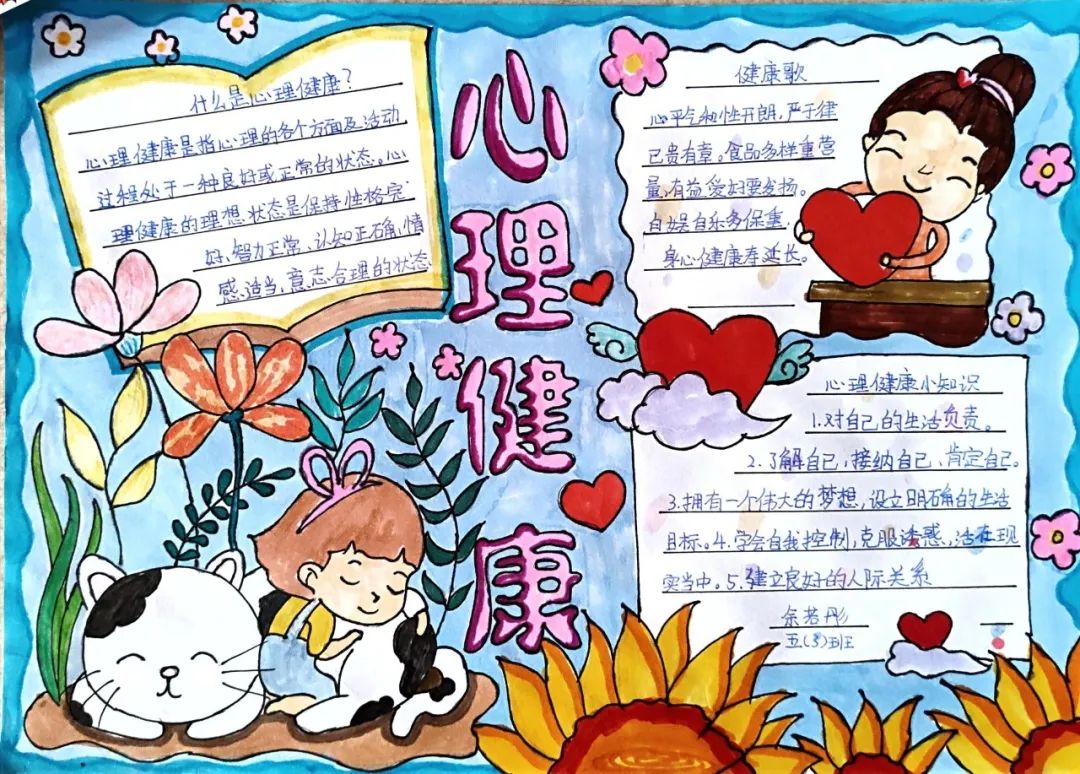 什么是心理健康？
心理健康是指心理的各个方面及活动
过程处于一种良好或正常的状态。心
理健康的理想状态是保持性格完
好、智力正常、认知正确、情
感适当、意志合理的状态
心理健康
健康歌
心平气和性开朗，严于律
己贵有章。食品多样重营
量，有益爱好要发扬。
自娱自乐多保重，
身心健康寿延长。
心理健康小知识
1.对自己的生活负责。
2.了解自己，接纳自己，肯定自己。
3.拥有一个伟大的梦想，设立明确的生活
目标。4.学会自我控制，克服诱惑，活在现
实当中。5.建立良好的人际关系
余若彤
五（3）班